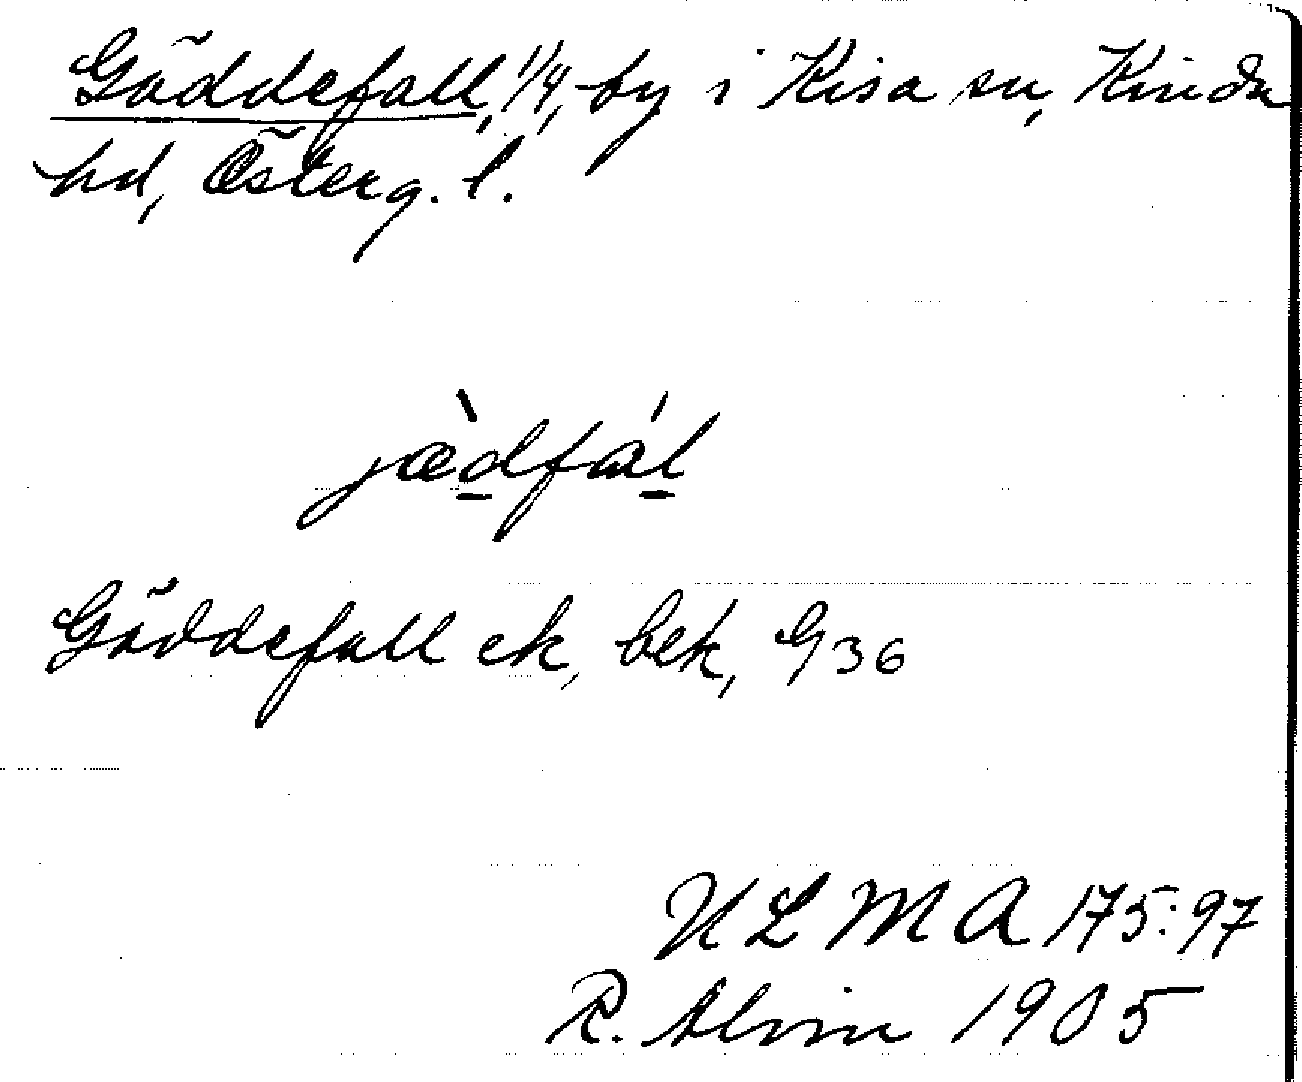 Göddefall, 1/4, by i Kisa sn, Kinda
hd, Österg. l.
jœ̀dfál
Göddefall ek, bek, G 36
ULMA 175:97
R. Alvin 1905